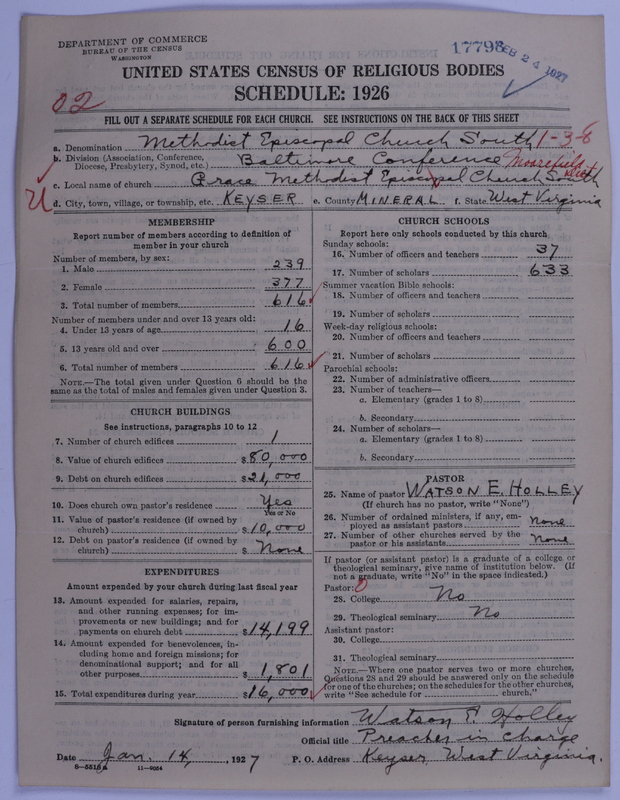 DEPARTMENT OF COMMERCE
BUREAU OF THE CENSUS
WASHINGTON
17798 FEB 24 1927
UNITED STATES CENSUS OF RELIGIOUS BODIES
SCHEDULE: 1926
02
FILL OUT A SEPARATE SCHEDULE FOR EACH CHURCH. SEE INSTRUCTIONS ON THE BACK OF THIS SHEET
a. Denomination Methodist Episcopal Church South 1-3-8
b. Division (Association, Conference, Diocese, Presbytery, Synod, etc.) Baltimore Conference Moorefield Dist
c. Local name of church Grace Methodist Episcopal Church South
d. City, town, village, or township, etc. KEYSER e. County MINERAL f. State West Virginia
MEMBERSHIP
Report number of members according to definition of
member in your church
Number of members, by sex:
1. Male 239
2. Female 377
3. Total number of members 616
Number of members under and over 13 years old:
4. Under 13 years of age 16
5. 13 years old and over 600
6. Total number of members 616
NOTE.—The total given under Question 6 should be the
same as the total of males and females given under Question 3.
CHURCH BUILDINGS
See instructions, paragraphs 10 to 12
7. Number of church edifices 1
8. Value of church edifices $80,000
9. Debt on church edifices $21,000
10. Does church own pastor's residence Yes
Yes or No
11. Value of pastor's residence (if owned by
church) $10,000
12. Debt on pastor's residence (if owned by
church) $ None
EXPENDITURES
Amount expended by your church during last fiscal year
13. Amount expended for salaries, repairs,
and other running expenses; for im-
provements or new buildings; and for
payments on church debt $14,199
14. Amount expended for benevolences, in-
cluding home and foreign missions; for
denominational support; and for all
other purposes $1,801
15. Total expenditures during year $16,000
CHURCH SCHOOLS
Report here only schools conducted by this church
Sunday schools:
16. Number of officers and teachers 37
17. Number of scholars 633
Summer vacation Bible schools:
18. Number of officers and teachers
19. Number of scholars
Week-day religious schools:
20. Number of officers and teachers
21. Number of scholars
Parochial schools:
22. Number of administrative officers
23. Number of teachers—
a. Elementary (grades 1 to 8)
b. Secondary
24. Number of scholars—
a. Elementary (grades 1 to 8)
b. Secondary
PASTOR
25. Name of pastor WATSON E. HOLLEY
(If church has no pastor, write "None")
26. Number of ordained ministers, if any, em-
ployed as assistant pastors None
27. Number of other churches served by the
pastor or his assistants None
If pastor (or assistant pastor) is a graduate of a college or
theological seminary, give name of institution below. (If
not a graduate, write "No" in the space indicated.)
Pastor: 0
28. College No
29. Theological seminary No
Assistant pastor:
30. College
31. Theological seminary
NOTE.—Where one pastor serves two or more churches,
Questions 28 and 29 should be answered only on the schedule
for one of the churches; on the schedules for the other churches,
write "See schedule for church."
Signature of person furnishing information Watson E. Holley
Official title Preacher in charge
Date Jan. 14, 1927 P. O. Address Keyser West Virginia.
8—5518a 11—9054